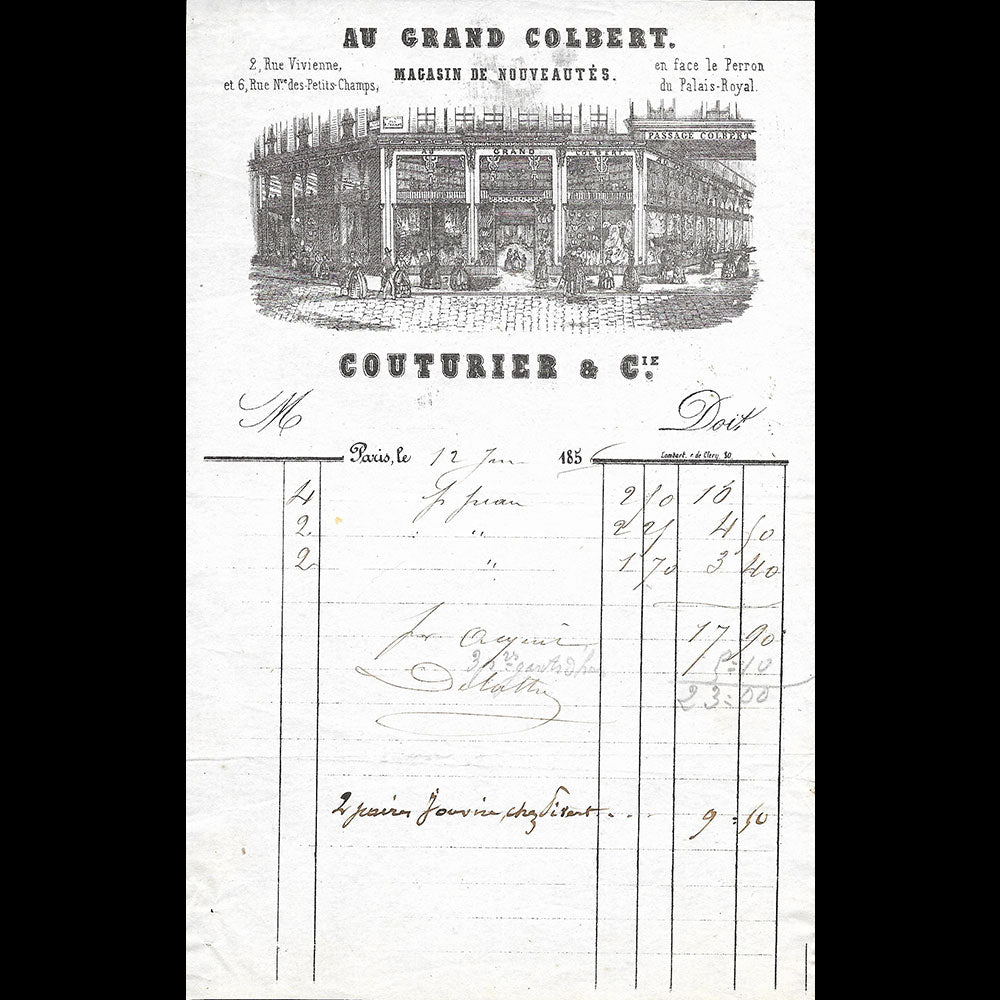 AU GRAND COLBERT.
2, Rue Vivienne,
et 6, Rue Nve des-Petits-Champs,
MAGASIN DE NOUVEAUTÉS.
en face le Perron
du Palais-Royal.
PASSAGE COLBERT
AU GRAND COLBERT
COUTURIER & CIE.
M Doit
Paris, le 12 Jan 1856
Lambert, r. de Clery, 30.
4 p peau 2 50 10
2 " 2 25 4 50
2 " 1 70 3 40
pr acquit 17 90
3 p rs gants d 5=10
Delattre 23=00
2 paires Jouvin, chez . . . 9=50